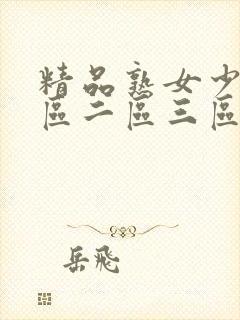 精品熟女少
區二區三區
岳飛